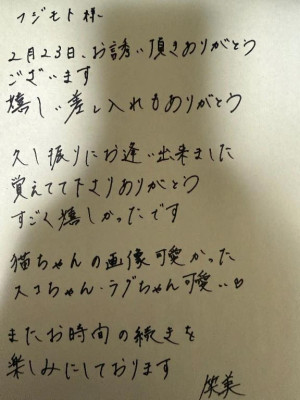 フジモト様
2月23日、お誘い頂きありがとう
ございます
嬉しい差し入れもありがとう
久し振りにお逢い出来ました
覚えてて下さりありがとう
すごく嬉しかったです
猫ちゃんの画像可愛かった
スコちゃん・ラグちゃん可愛い♡
またお時間の続きを
楽しみにしております
笑美